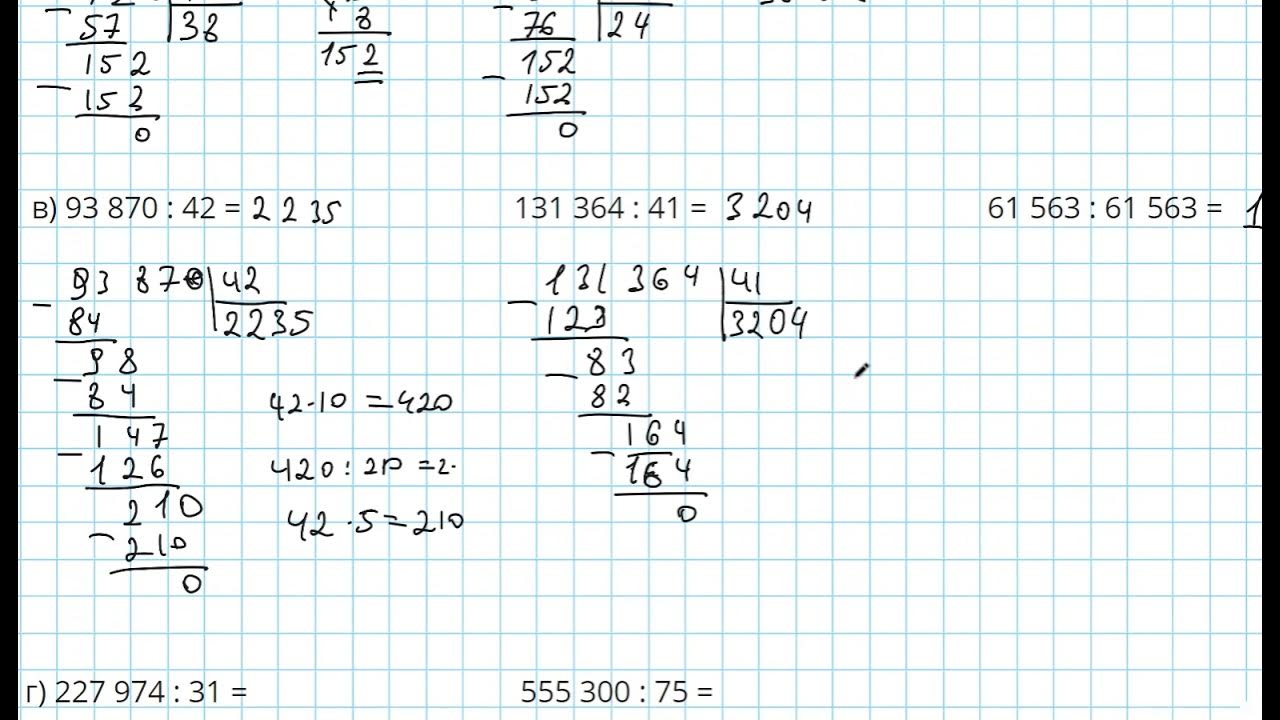 57 38 8 76 24
152 152 152
152 152
0 0
в) 93 870 : 42 = 2235 131 364 : 41 = 3204 61 563 : 61 563 = 1
93 870 42 131 364 41
84 2235 123 3204
98 83
84 42·10 = 420 82
147 164
126 420 : 210 = 2. 164
210 42·5 = 210 0
210
0
г) 227 974 : 31 = 555 300 : 75 =